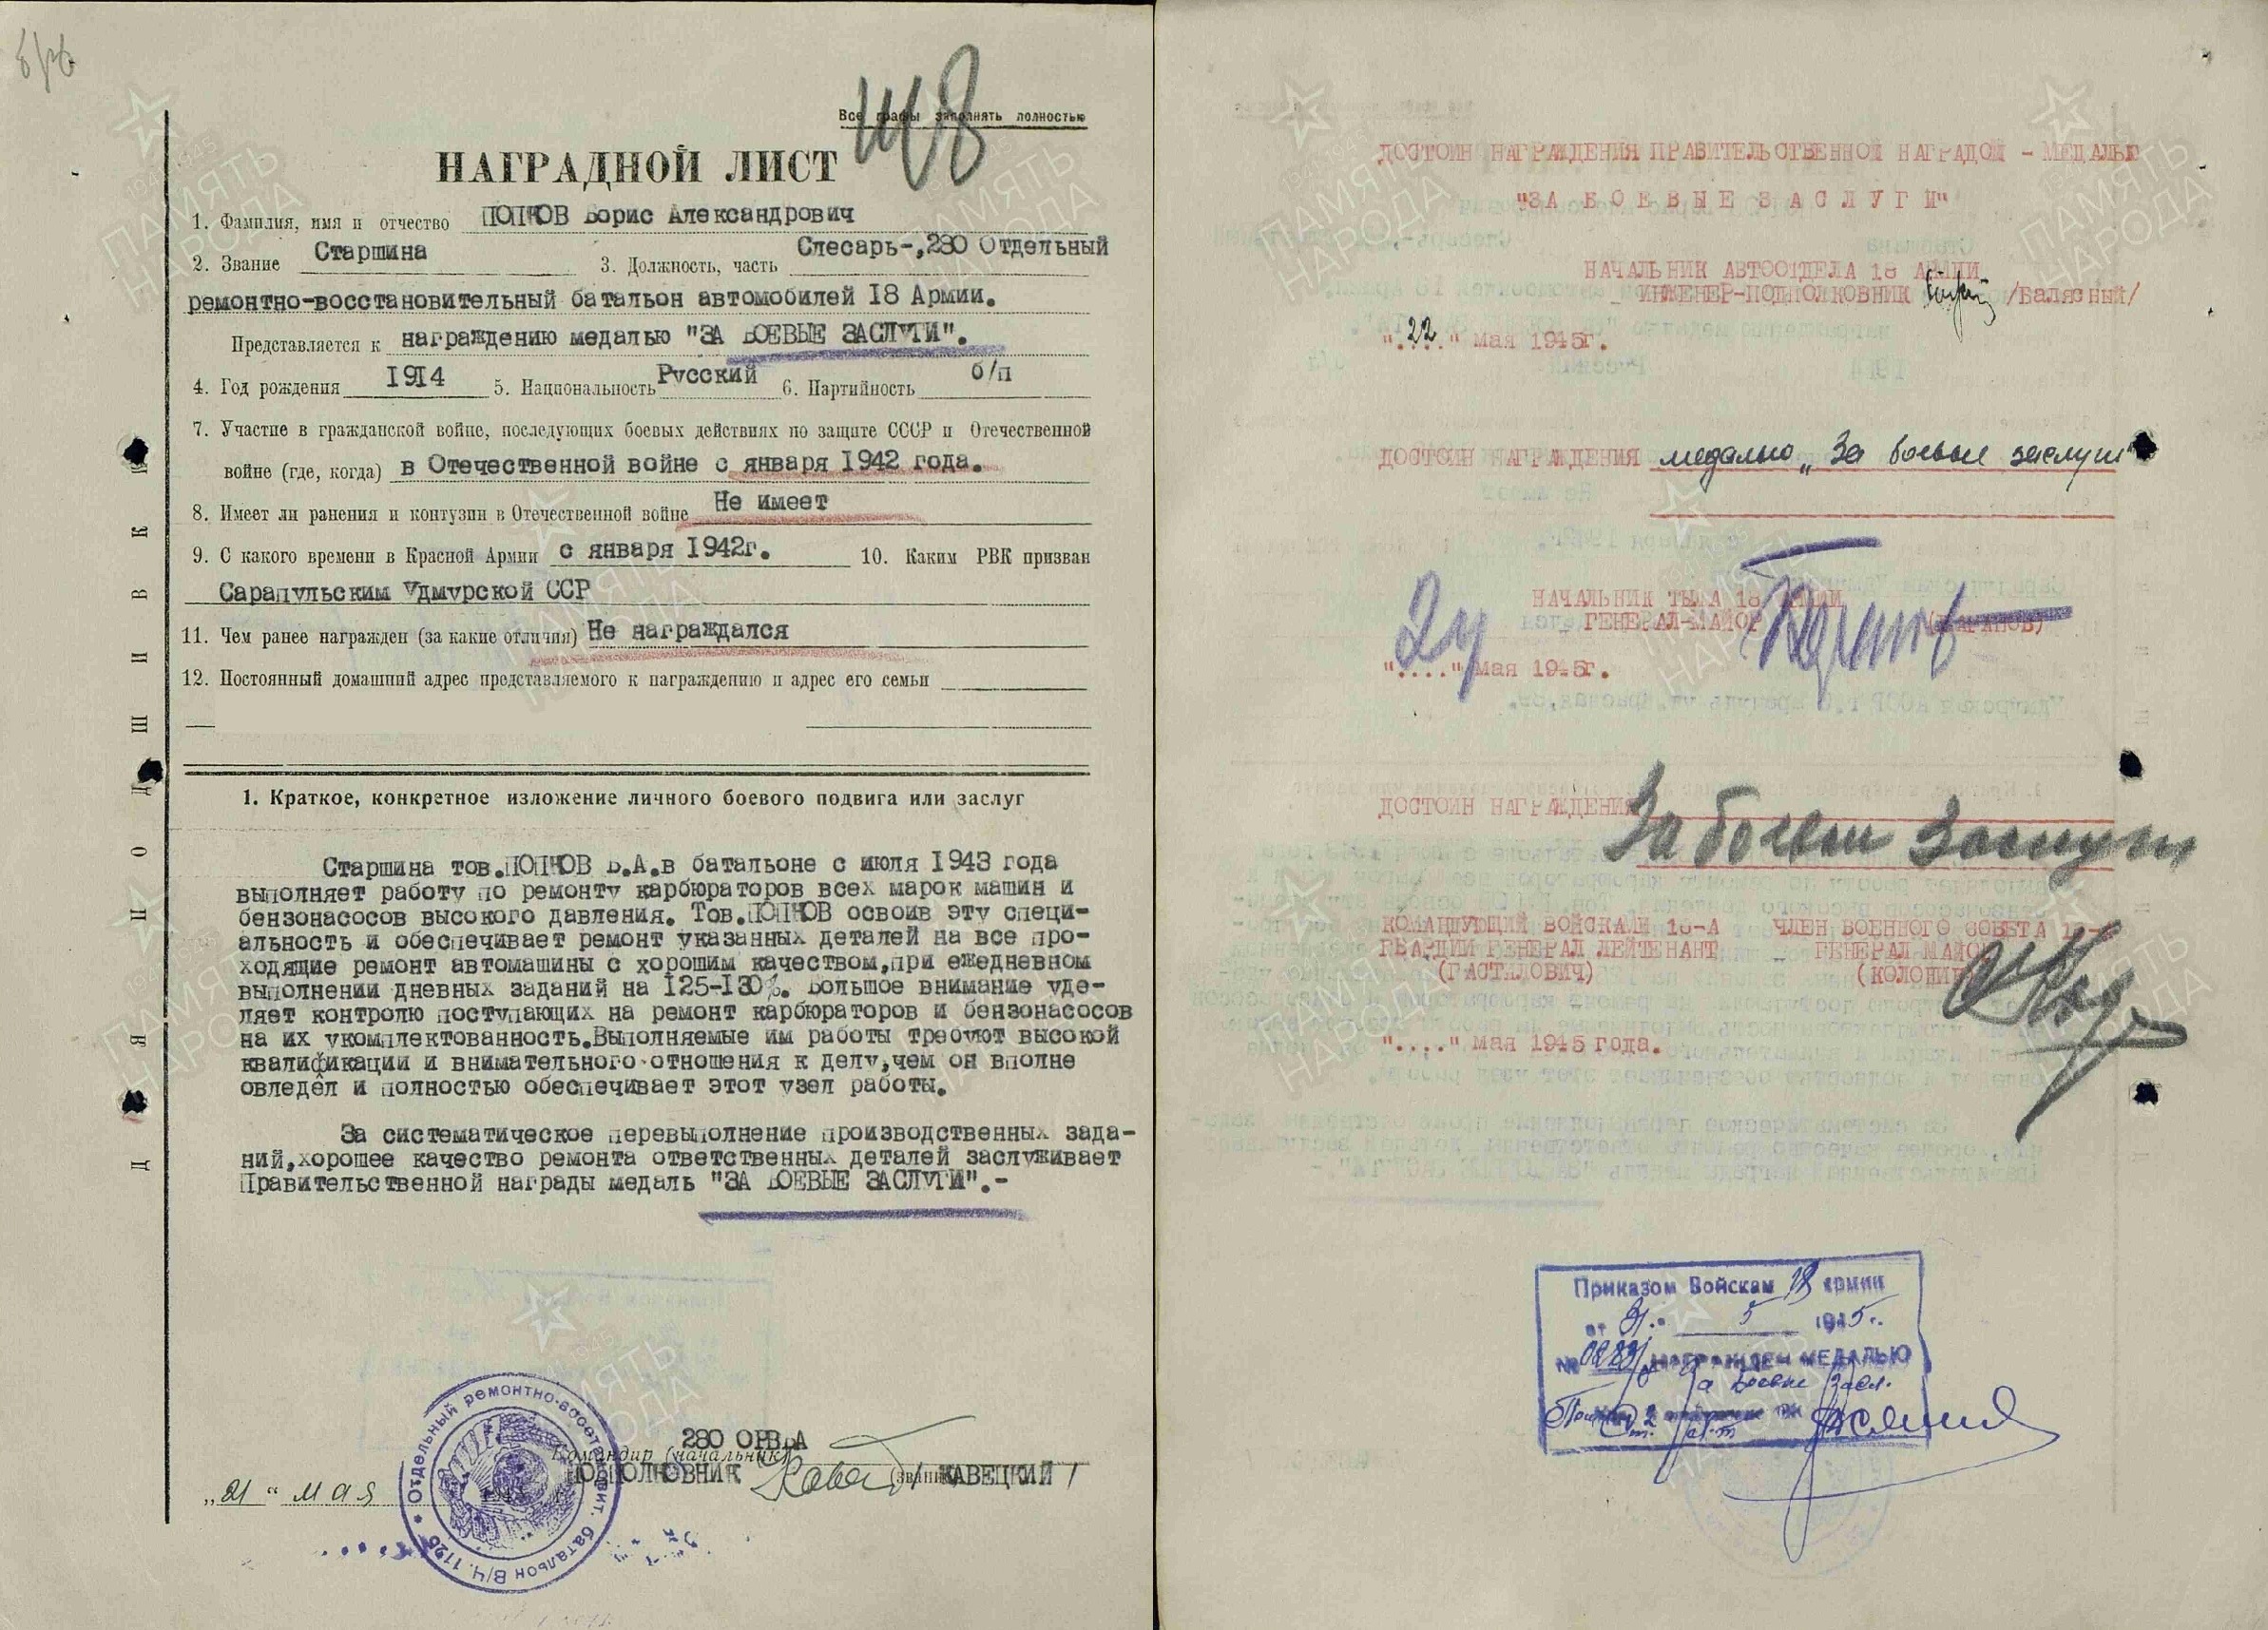 б/и
Все графы заполнять полностью
НАГРАДНОЙ ЛИСТ
1. Фамилия, имя и отчество ПОПКОВ Борис Александрович
2. Звание Старшина 3. Должность, часть Слесарь-,280 Отдельный
ремонтно-восстановительный батальон автомобилей 18 Армии.
Представляется к награждению медалью "ЗА БОЕВЫЕ ЗАСЛУГИ".
4. Год рождения 1914 5. Национальность Русский 6. Партийность б/п
7. Участие в гражданской войне, последующих боевых действиях по защите СССР и Отечественной
войне (где, когда) в Отечественной войне с января 1942 года.
8. Имеет ли ранения и контузии в Отечественной войне Не имеет
9. С какого времени в Красной Армии с января 1942г. 10. Каким РВК призван
Сарапульским Удмурской ССР
11. Чем ранее награжден (за какие отличия) Не награждался
12. Постоянный домашний адрес представляемого к награждению и адрес его семьи
1. Краткое, конкретное изложение личного боевого подвига или заслуг
Старшина тов.ПОПКОВ Б.А.в батальоне с июля 1943 года
выполняет работу по ремонту карбюраторов всех марок машин и
бензонасосов высокого давления. Тов.ПОПКОВ освоив эту специ-
альность и обеспечивает ремонт указанных деталей на все про-
ходящие ремонт автомашины с хорошим качеством,при ежедневном
выполнении дневных заданий на 125-130%. Большое внимание уде-
ляет контролю поступающих на ремонт карбюраторов и бензонасосов
на их укомплектованность.Выполняемые им работы требуют высокой
квалификации и внимательного отношения к делу,чем он вполне
овледел и полностью обеспечивает этот узел работы.
За систематическое перевыполнение производственных зада-
ний,хорошее качество ремонта ответственных деталей заслуживает
Правительственной награды медаль "ЗА БОЕВЫЕ ЗАСЛУГИ".-
280 ОРВБА
Командир (начальник)
ПОДПОЛКОВНИК (звание) /КАВЕЦКИЙ/
„21“ мая
Отдельный ремонтно-восстановит. батальон В/Ч. 1126
ДЛЯ ПОДШИВКИ
ДОСТОИН НАГРАЖДЕНИЯ ПРАВИТЕЛЬСТВЕННОЙ НАГРАДОЙ - МЕДАЛЬЮ
"ЗА БОЕВЫЕ ЗАСЛУГИ"
НАЧАЛЬНИК АВТООТДЕЛА 18 АРМИИ
ИНЖЕНЕР-ПОДПОЛКОВНИК /Балясный/
"22" мая 1945г.
ДОСТОИН НАГРАЖДЕНИЯ медалью „За боевые заслуги"
НАЧАЛЬНИК ТЫЛА 18 АРМИИ
ГЕНЕРАЛ-МАЙОР (БАРАНОВ)
"24" мая 1945г.
ДОСТОИН НАГРАЖДЕНИЯ За боевые заслуги
КОМАНДУЮЩИЙ ВОЙСКАМИ 18-А ЧЛЕН ВОЕННОГО СОВЕТА 18-
ГВАРДИИ ГЕНЕРАЛ ЛЕЙТЕНАНТ ГЕНЕРАЛ-МАЙОР
(ГАСТИЛОВИЧ) (КОЛОНИН)
"...." мая 1945 года.
Приказом Войскам 18 армии
от 31. 5 1945г.
№ НАГРАЖДЕН МЕДАЛЬЮ
За боевые засл.
ПАМЯТЬ
НАРОДА